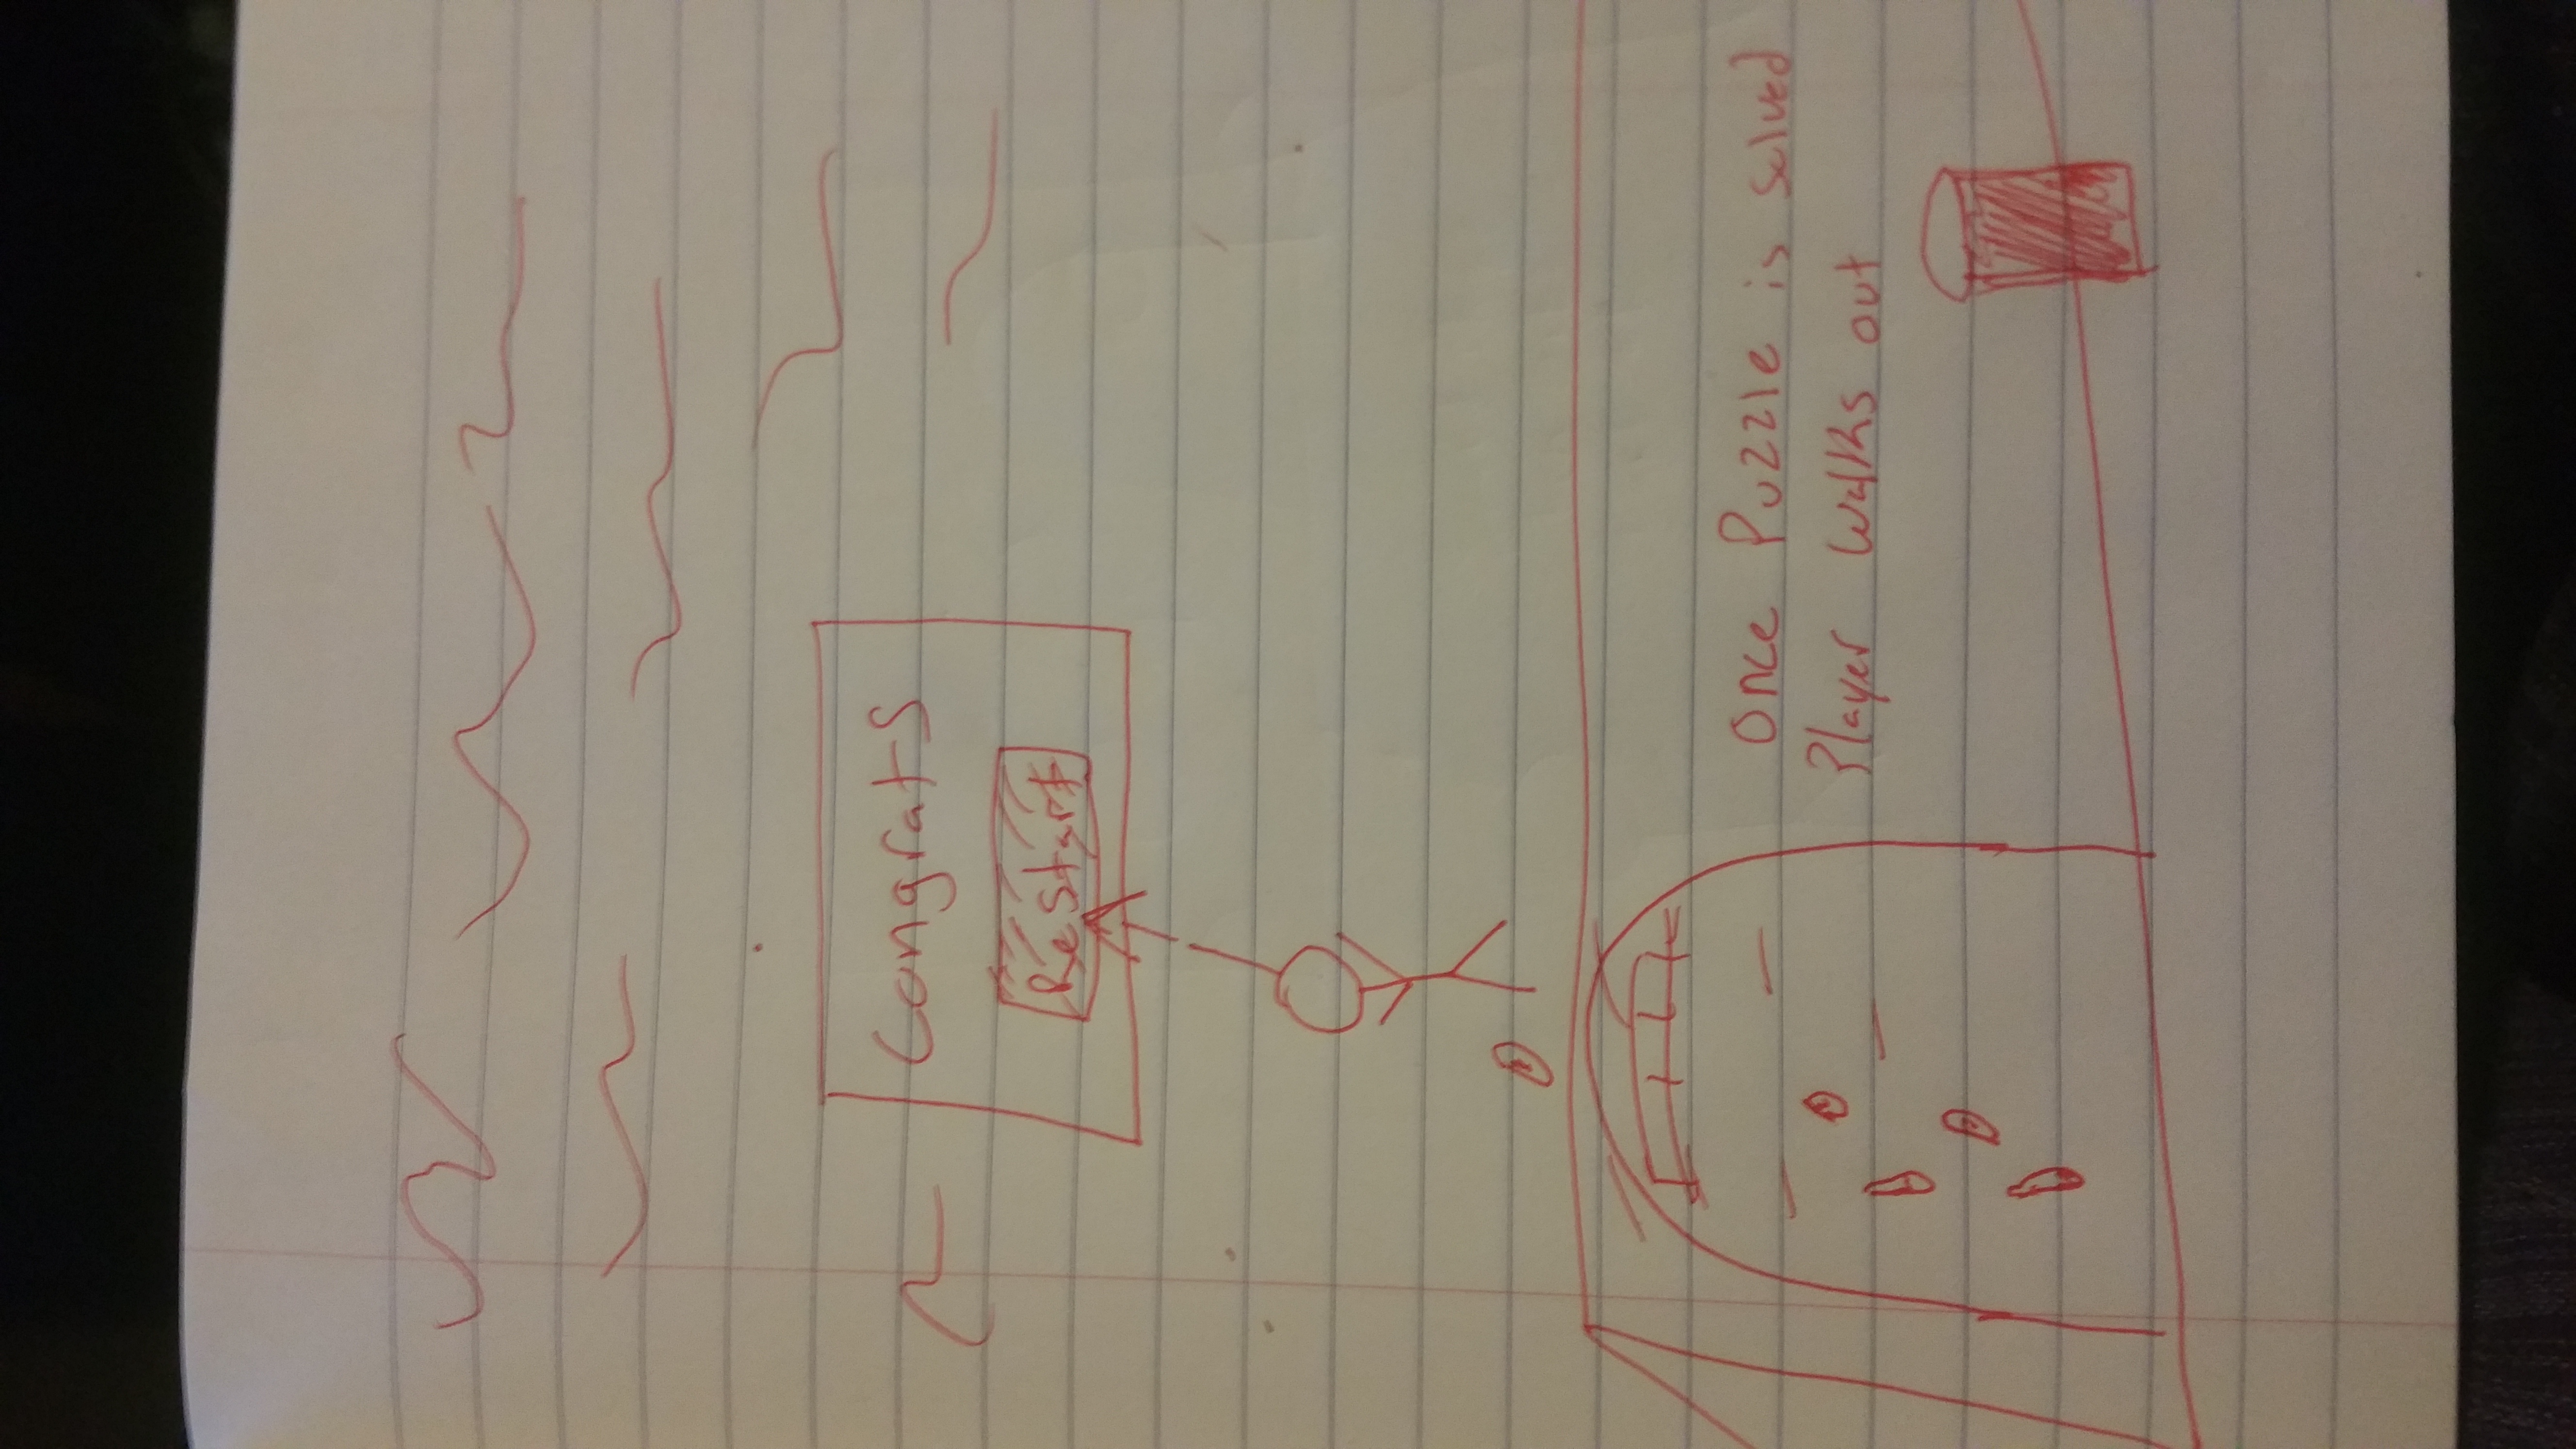 Congrats
ReStart
Once Puzzle is solved
Player walks out